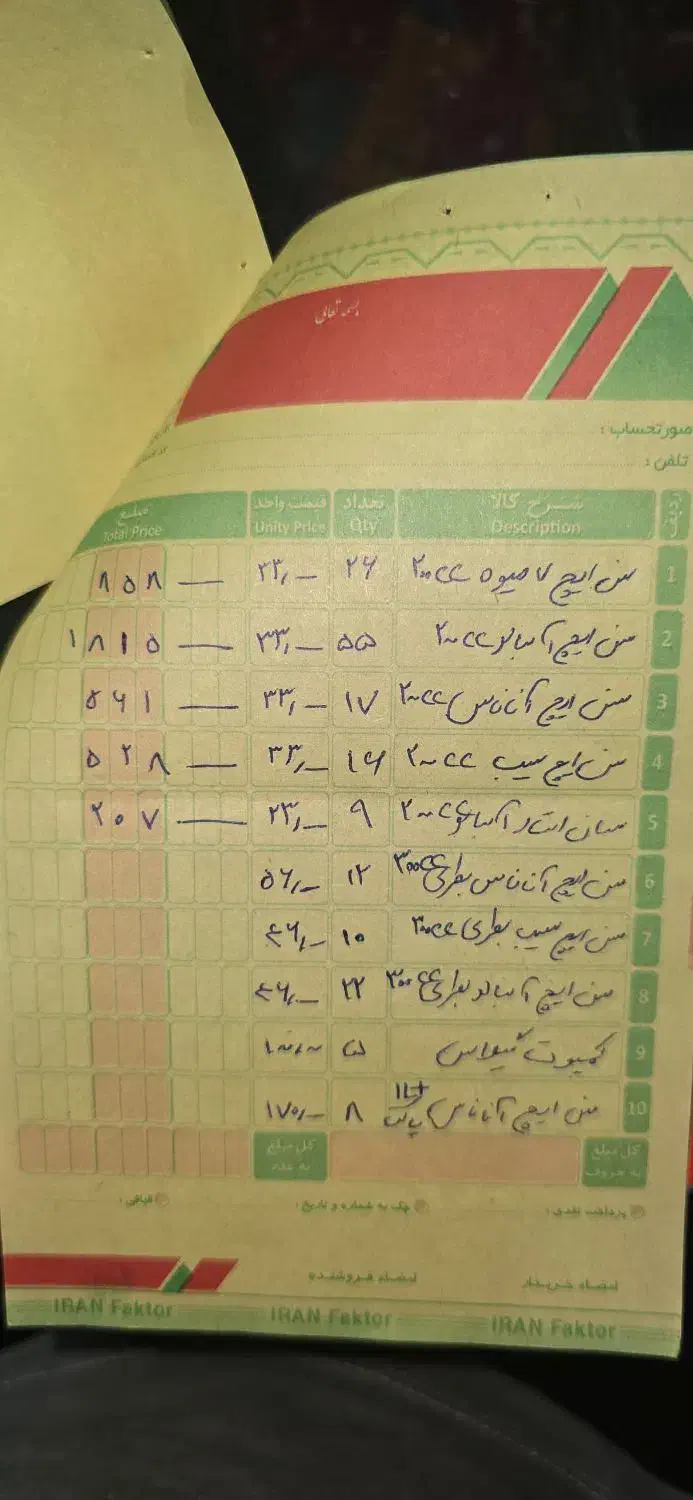 بسمه تعالی
صورتحساب :
تلفن :
ردیف شرح کالا Description تعداد Qty قیمت واحد Unity Price مبلغ Total Price
1 سن ایچ ۷ میوه ۲۰۰cc ۲۶ ۳۳,— ۸۵۸ —
2 سن ایچ آلبالو ۲۰۰cc ۵۵ ۳۳,— ۱۸۱۵ —
3 سن ایچ آناناس ۲۰۰cc ۱۷ ۳۳,— ۵۶۱ —
4 سن ایچ سیب ۲۰۰cc ۱۶ ۳۳,— ۵۲۸ —
5 سان استار آلبالو ۲۰۰cc ۹ ۲۳,— ۲۰۷ —
6 سن ایچ آناناس بطری ۳۰۰cc ۱۲ ۵۶,—
7 سن ایچ سیب بطری ۳۰۰cc ۱۰ ۴۶,—
8 سن ایچ آلبالو بطری ۳۰۰cc ۲۲ ۴۶,—
9 کمپوت گیلاس ۵
10 سن ایچ آناناس پاکت 1Lit ۸ ۱۷۵,—
کل مبلغ به حروف کل مبلغ به عدد
پرداخت نقدی : چک به شماره و تاریخ : الباقی :
امضاء خریدار امضاء فروشنده
IRAN Faktor IRAN Faktor IRAN Faktor